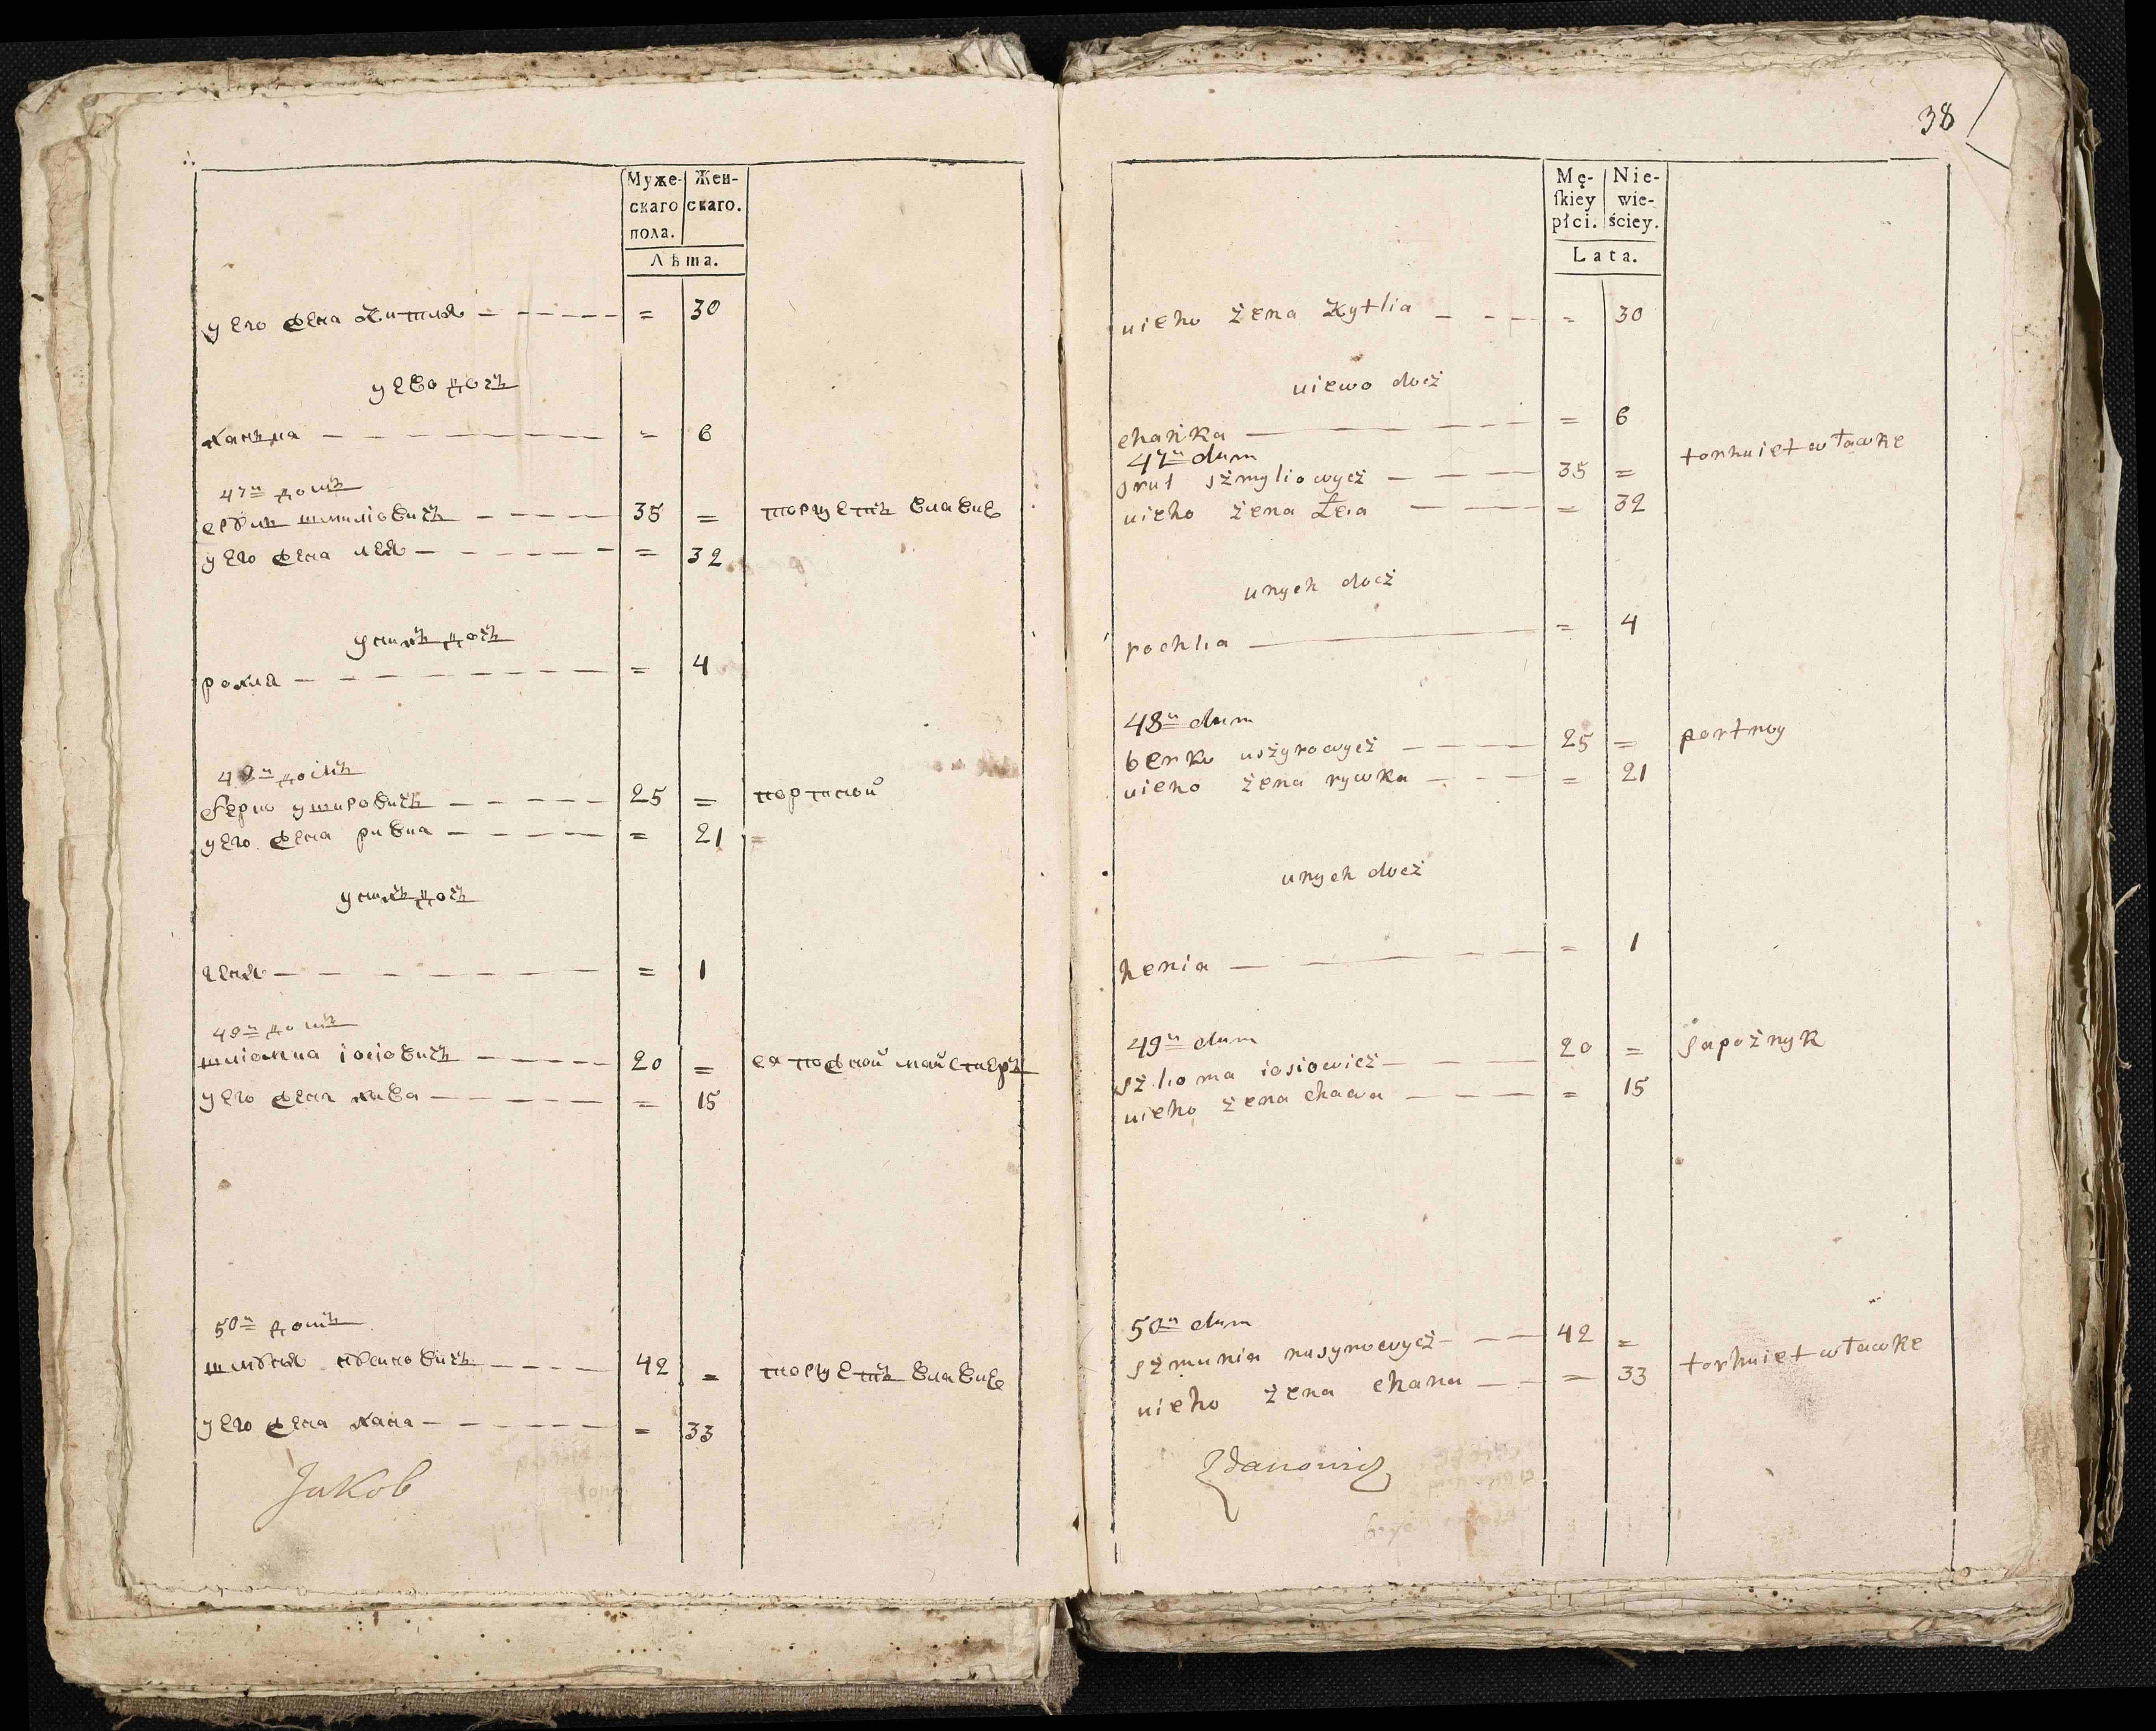 Муже-
скаго
пола.
Жен-
скаго.
Лѣта.
у его жена житля = 30
у ево дочъ
ханька = 6
47й домъ
шмиліовичъ 35 = торгуетъ влавке
у его жена лея = 32
у нихъ дочъ
рохля = 4
48й домъ
берко уширович 25 = портной
у его жена ривка = 21
у нихъ дочъ
геня = 1
49й домъ
шліомка іосіовичъ 20 = сапожной майстеръ
у его жена хава = 15
50й домъ
шмуня 42 = торгуетъ влавке
у его жена хана = 33
Jakob
38
Mę-
ſkiey
płci.
Nie-
wie-
ściey.
Lata.
uieho żena Żytlia = 30
uiewo docż
chańka = 6
47й dum
srul sżmyliowycż 35 = torhuiet w ławke
uieho żena Łeia = 32
unych docż
rochlia = 4
48й dum
berko uszyrowycż 25 = portnoy
uieho żena rywka = 21
unych docż
henia = 1
49й dum
sżlioma iosiowicż 20 = sapożnyk
uieho żena chawa = 15
50й dum
sżmunia nusynowycż 42 = torhuiet w ławke
uieho żena chana = 33
Zdanowicz